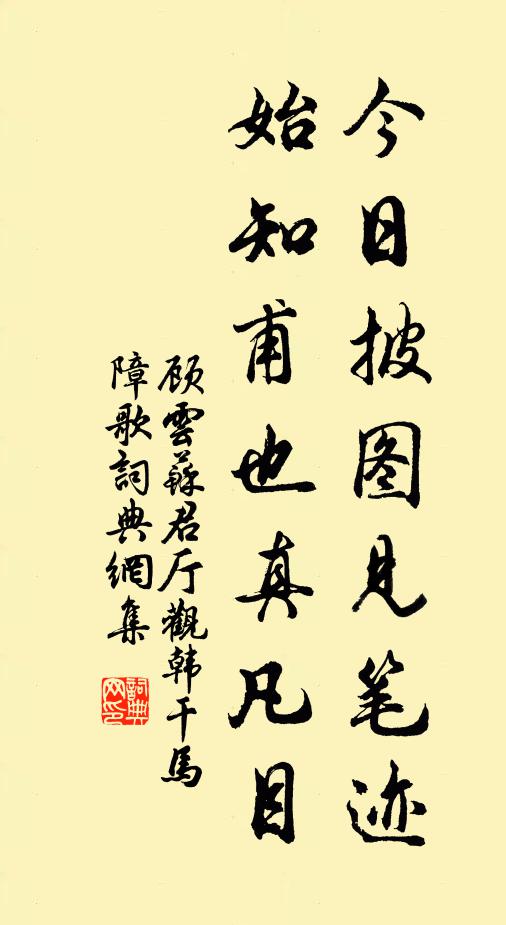 今日披图见笔迹
始知甫也真凡目
顾雲蘇君厅觀韩干馬
障歌詞典網集
詞典网印